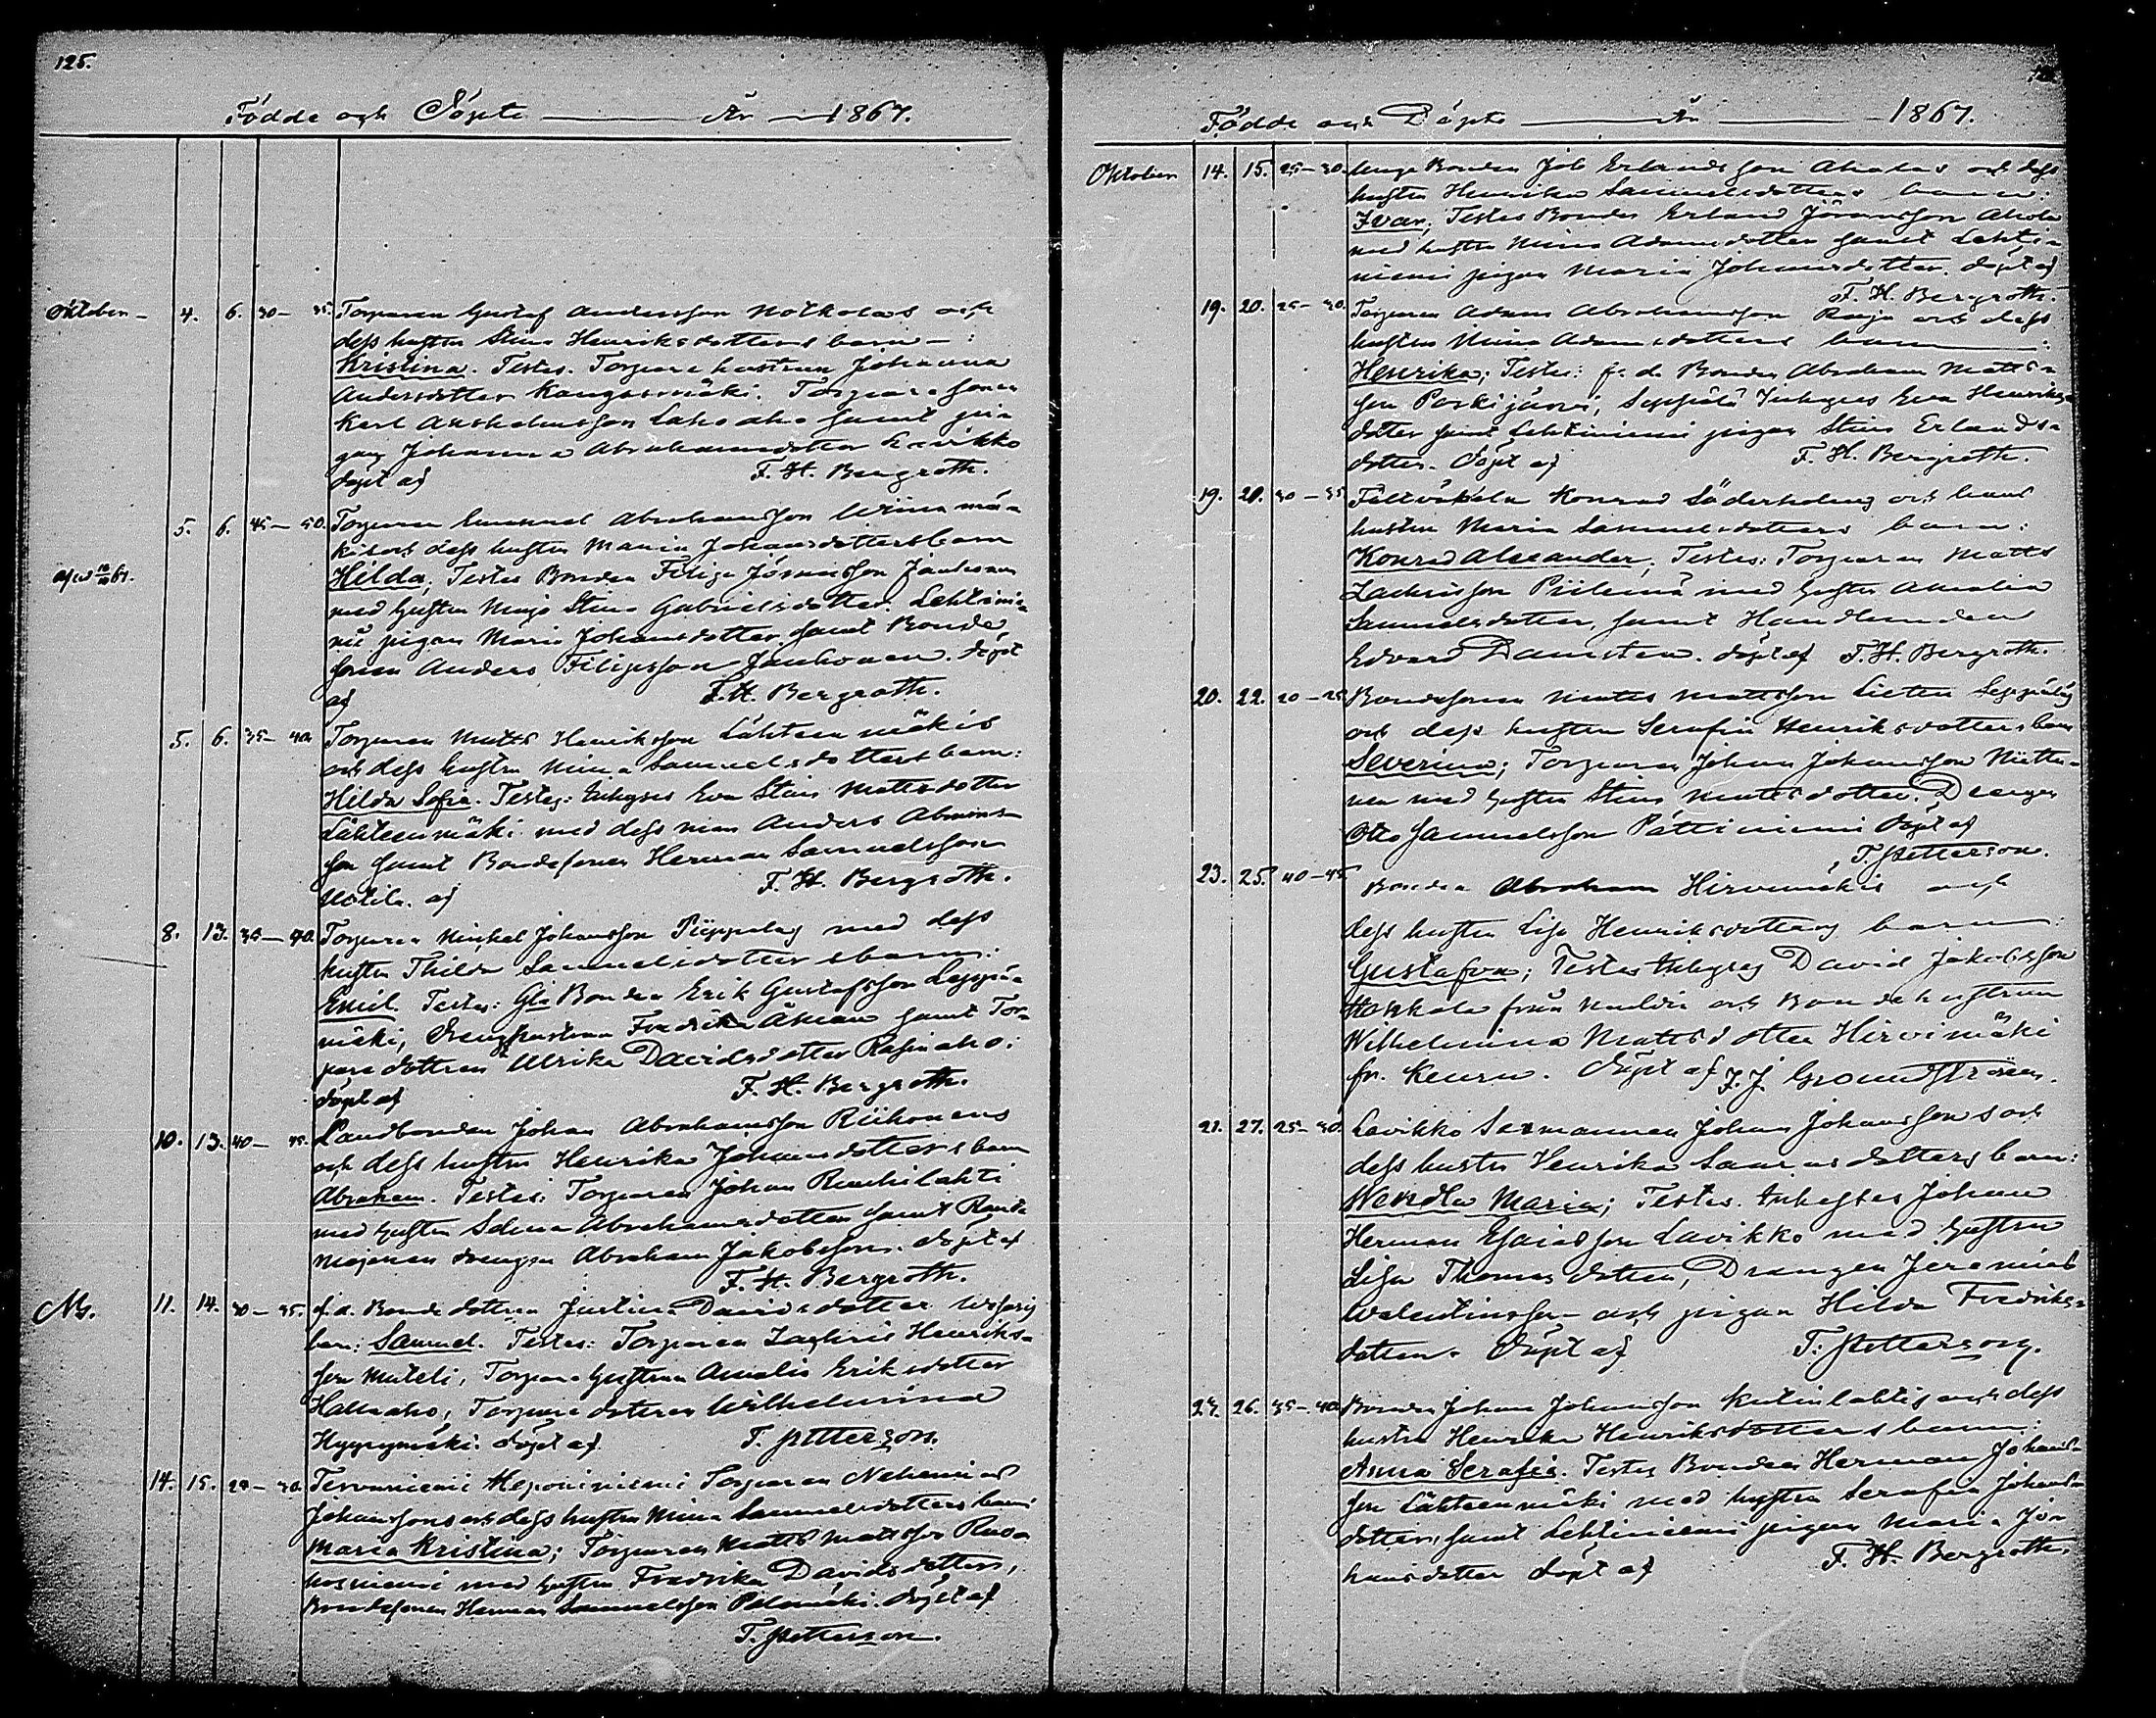 125.
Födde och Döpte — År — 1867.
Oktober - 4. 6. 30 - 35. Torparen Gustaf Andersson Notkolas och
dess hustru Stina Henriksdotters barn - :
Kristina. Testes. Torpare hustrun Johanna
Andersdotter Kangasmäki. Torpare sonen
Karl Anshelmsson Lahoaho samt pi-
gan Johanna Abrahamsdotter Lavikko
döpt af F. H. Bergroth.
5. 6. 45 - 50. Torparen Emanuel Abrahamsson Wiinamä-
kis och dess hustru Maria Johansdotters barn
Hilda; Testes Bonden Filip Jöransson Janhonen
med hustru Maja Stina Gabrielsdotter. Lehtinie-
mi pigan Maria Johansdotter samt Bonde
sonen Anders Filipsson Janhonen. döpt
af F. H. Bergroth.
5. 6. 35 - 40. Torparen Matts Henriksson Lähteenmäkis
och dess hustru Mina Samuelsdotters barn:
Hilda Sofia. Testes: Inhyses Eva Stina Mattsdotter
Lähteenmäki med dess man Anders
son samt Bondesonen Herman Samuelsson
af F. H. Bergroth.
8. 13. 40. Torparen Mickel Johansson Piippolas med dess
hustru Thilda Samuelsdotters barn:
Emil. Testes: Gla Bonden Erik Gustafsson Leppä-
mäki, Drenghustrun Fredrika Åman samt Tor-
pare dottren Ulrika Davidsdotter Rasinaho.
döpt af F. H. Bergroth.
10. 13. 40 - 45. Landbonden Johan Abrahamsson Riihonens
och dess hustru Henrika Johansdotters barn
Abraham. Testes: Torparen Johan Rauhilahti
med hustru Selma Abrahamsdotter samt
drengen Abraham Jakobsson. döpt af
F. H. Bergroth.
11. 14. 30 - 35. f.d. Bonde dottren Justina Davidsdotter
barn: Samuel. Testes: Torparen Zachris Henriks-
son Muteli, Torpare hustrun Amalia Eriksdotter
Hallaaho, Torpare dottren Wilhelmina
Hyypymäki. döpt af T. Petterson.
14. 15. 30. Tervaniemi Heponiemi Torparen Nehemias
Johanssons och dess hustru Mina Samuelsdotters barn
Maria Kristina; Torparen Matts Mattsson
med hustru Fredrika Davidsdotter,
Bondesonen Herman Samuelsson Palomäki. döpt af
T. Petterson.
Födde och Döpte — År — 1867.
Oktober 14. 15. 25 - 30. unga Bonden Job Erlandsson Aholas och dess
hustru Henrika Samuelsdotters barn:
Ivar; Testes Bonden Erland Jöransson Ahola
med hustru Mina Adamsdotter samt Lehti-
niemi pigan Maria Johansdotter. döpt af
F. H. Bergroth.
19. 20. 25 - 30. Torparen Adam Abrahamsson och dess
hustru Mina Adamsdotters barn :
Henrika; Testes: f.d. Bonden Abraham Matts-
son Poskijärvi, Seppälä Inhyses Eva Henriks-
dotter samt Lehtiniemi pigan Stina Erlands-
dotter. Döpt af F. H. Bergroth.
19. 20. 30 - 35. Konrad Söderholms och hans
hustru Maria Samuelsdotters barn:
Konrad Alexander; Testes: Torparen Matts
Zachrisson Piilemä med hustru Amalia
Samuelsdotter, samt Handlanden
Edvard Damsten. döpt af F. H. Bergroth.
20. 22. 20 - 25. Bondesonen Matts Mattsson Seppäläs
och dess hustru Serafia Henriksdotters barn
Severina; Torparen Johan Johansson Niitty-
nen med hustru Stina Mattsdotter. Drengen
Otto Samuelsson Pättiniemi döpt af
T. Petterson.
23. 25. 40 - 45. Bonden Abraham Hirvimäkis och
dess hustru Lisa Henriksdotters barn:
Gustafva; Testes Inhyses David Jakobsson
Hoskala från Multia och Bondehustrun
Wilhelmina Mattsdotter Hirvimäki
fr. Keuru. Döpt af J. J. Grounstroem.
21. 27. 25 - 30. Lavikko Johan Johanssons och
dess hustru Henrika dotters barn:
Wendla Maria; Testes. Inhyses Johan
Herman Esaiasson Lavikko med hustru
Lisa Thomasdotter, Drengen Jeremias
Walentinsson och pigan Hilda Fredriks-
dotter. Döpt af T. Petterson.
26. 35 - 40. Bonden Johan Johansson Kutinlahtis och dess
hustru Henrika Henriksdotters barn:
Anna Serafia. Testes Bonden Herman Johans-
son Lähteenmäki med hustru Serafia Johans-
dotter, samt Lehtiniemi pigan Maria Jo-
hansdotter döpt af F. H. Bergroth.